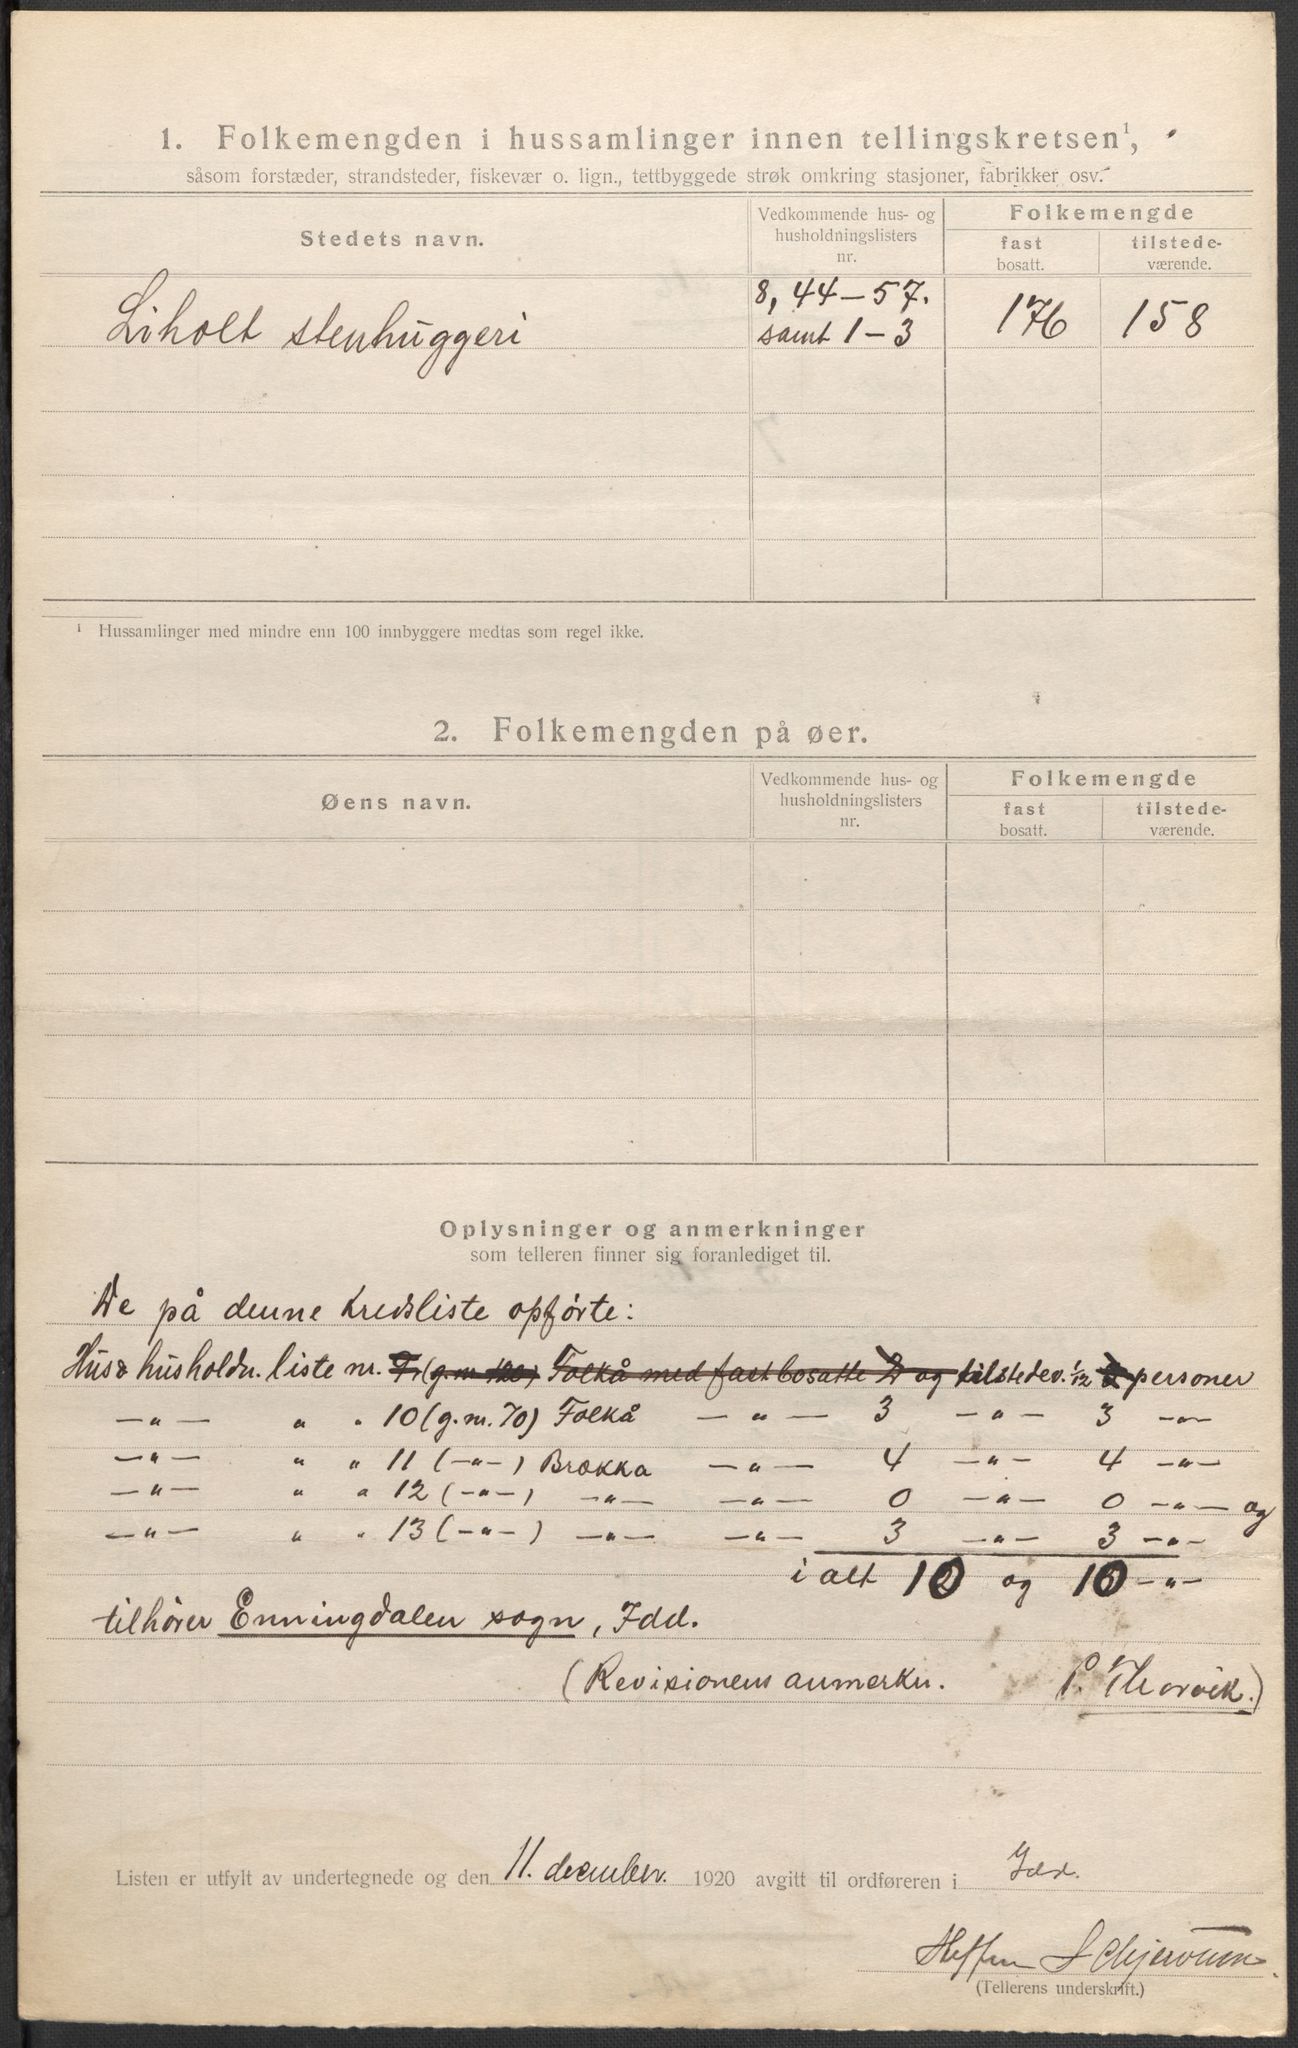 1. Folkemengden i hussamlinger innen tellingskretsen¹,
såsom forstæder, strandsteder, fiskevær o. lign., tettbyggede strøk omkring stasjoner, fabrikker osv.
Stedets navn.
Vedkommende hus- og husholdningslisters nr.
Folkemengde
fast bosatt.
tilstede-værende.
Liholt stenhuggeri
8, 44-57. samt 1-3
176
158
¹ Hussamlinger med mindre enn 100 innbyggere medtas som regel ikke.
2. Folkemengden på øer.
Øens navn.
Vedkommende hus- og husholdningslisters nr.
Folkemengde
fast bosatt.
tilstede-værende.
Oplysninger og anmerkninger
som telleren finner sig foranlediget til.
De på denne kredsliste opførte:
Hus & husholdn. liste nr. (g.nr. 120) Folkå med fast bosatte 2 og tilstedev. 1/12 2 personer
—„— „ „ 10 (g.nr. 70) Folkå —„— 3 —„— 3 —„—
—„— „ „ 11 (—„—) Brokka —„— 4 —„— 4 —„—
—„— „ „ 12 (—„—) —„— —„— 0 —„— 0 —„— og
—„— „ „ 13 (—„—) —„— —„— 3 —„— 3 —„—
i alt 10 og 10 —„—
tilhører Enningdalen sogn, Idd.
(Revisionens anmerkn. P. Thorvik.)
Listen er utfylt av undertegnede og den 11. december. 1920 avgitt til ordføreren i Idd.
Steffen
(Tellerens underskrift.)